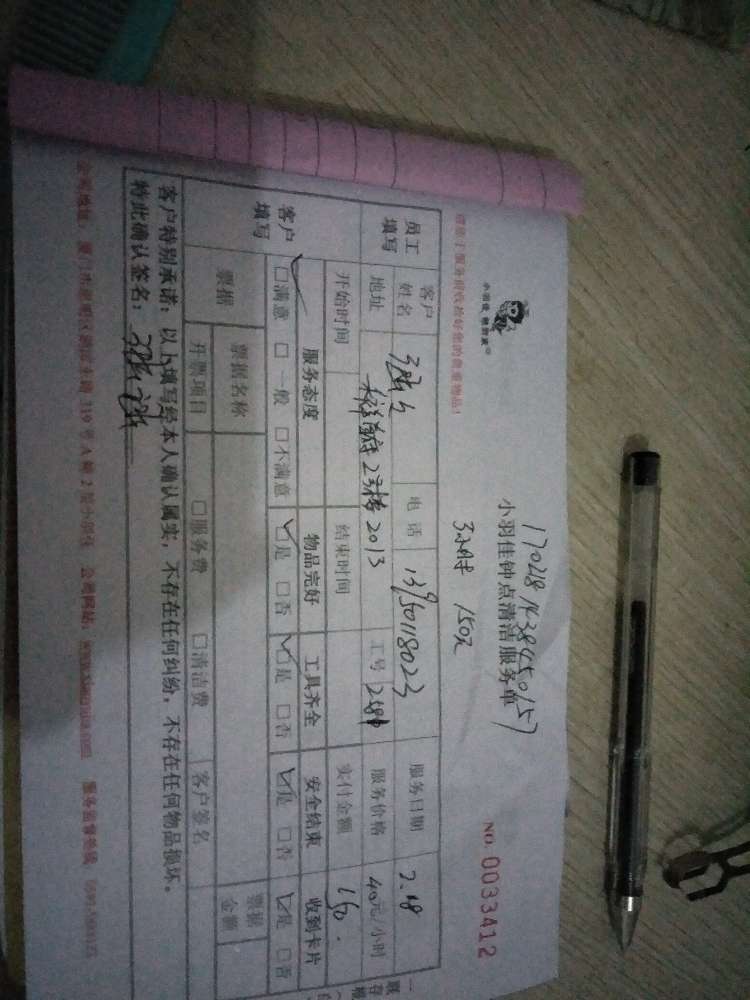 小羽佳 鹅管家
小羽佳钟点清洁服务单
NO. 0033412
3小时 150元
员工填写
客户姓名
电话 13950118023
服务日期 2.18
地址 2号楼2013
工号
服务价格 40元/小时
开始时间
结束时间
实付金额 150.
客户填写
服务态度 物品完好 工具齐全 安全结束 收到卡片
□满意 □一般 □不满意 □是 □否 □是 □否 □是 □否 □是 □否
票据
票据名称
票据金额
开票项目 □服务费 □清洁费 客户签名
客户特别承诺：以上填写经本人确认属实，不存在任何纠纷，不存在任何物品损坏。
特此确认签名：
119号A幢2层小羽佳 公司网站：